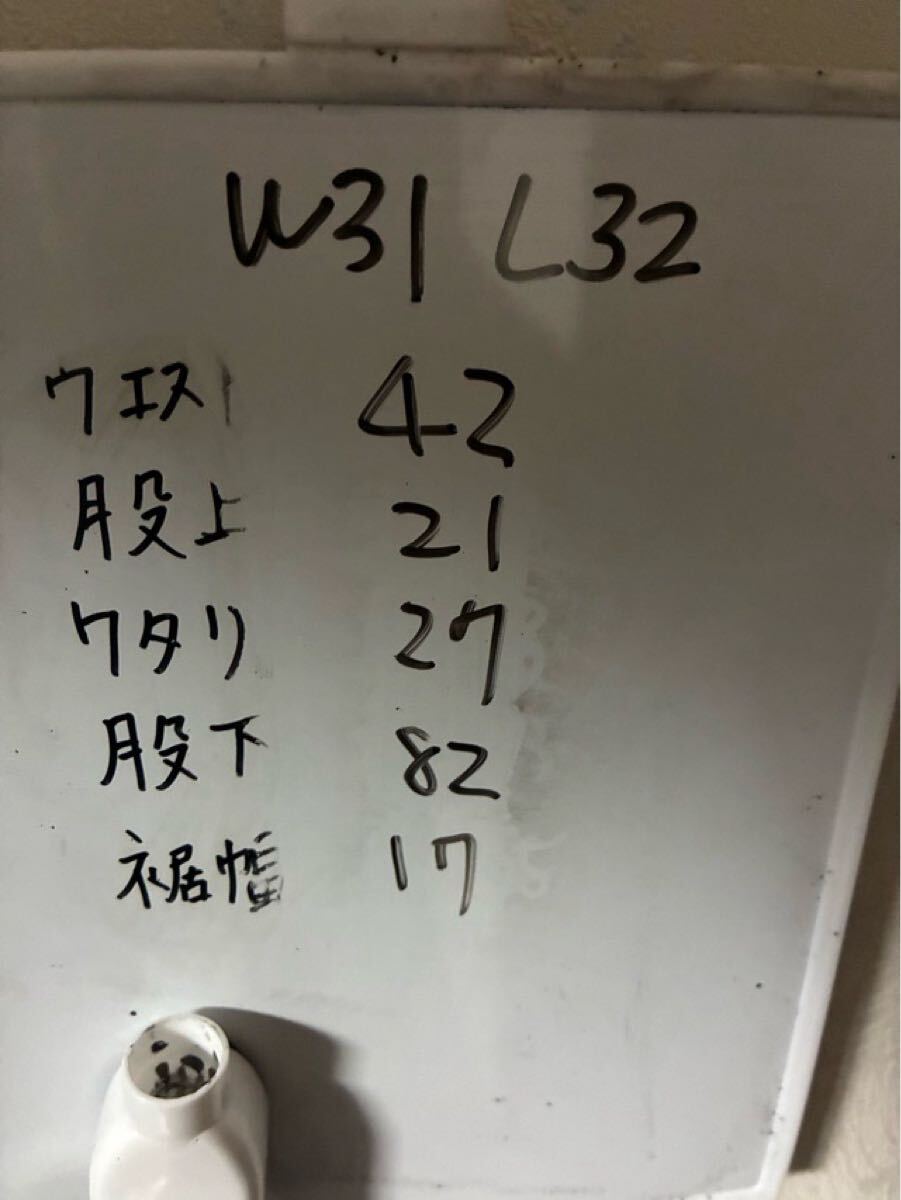 W31 L32
ウエスト 42
股上 21
ワタリ 27
股下 82
裾幅 17